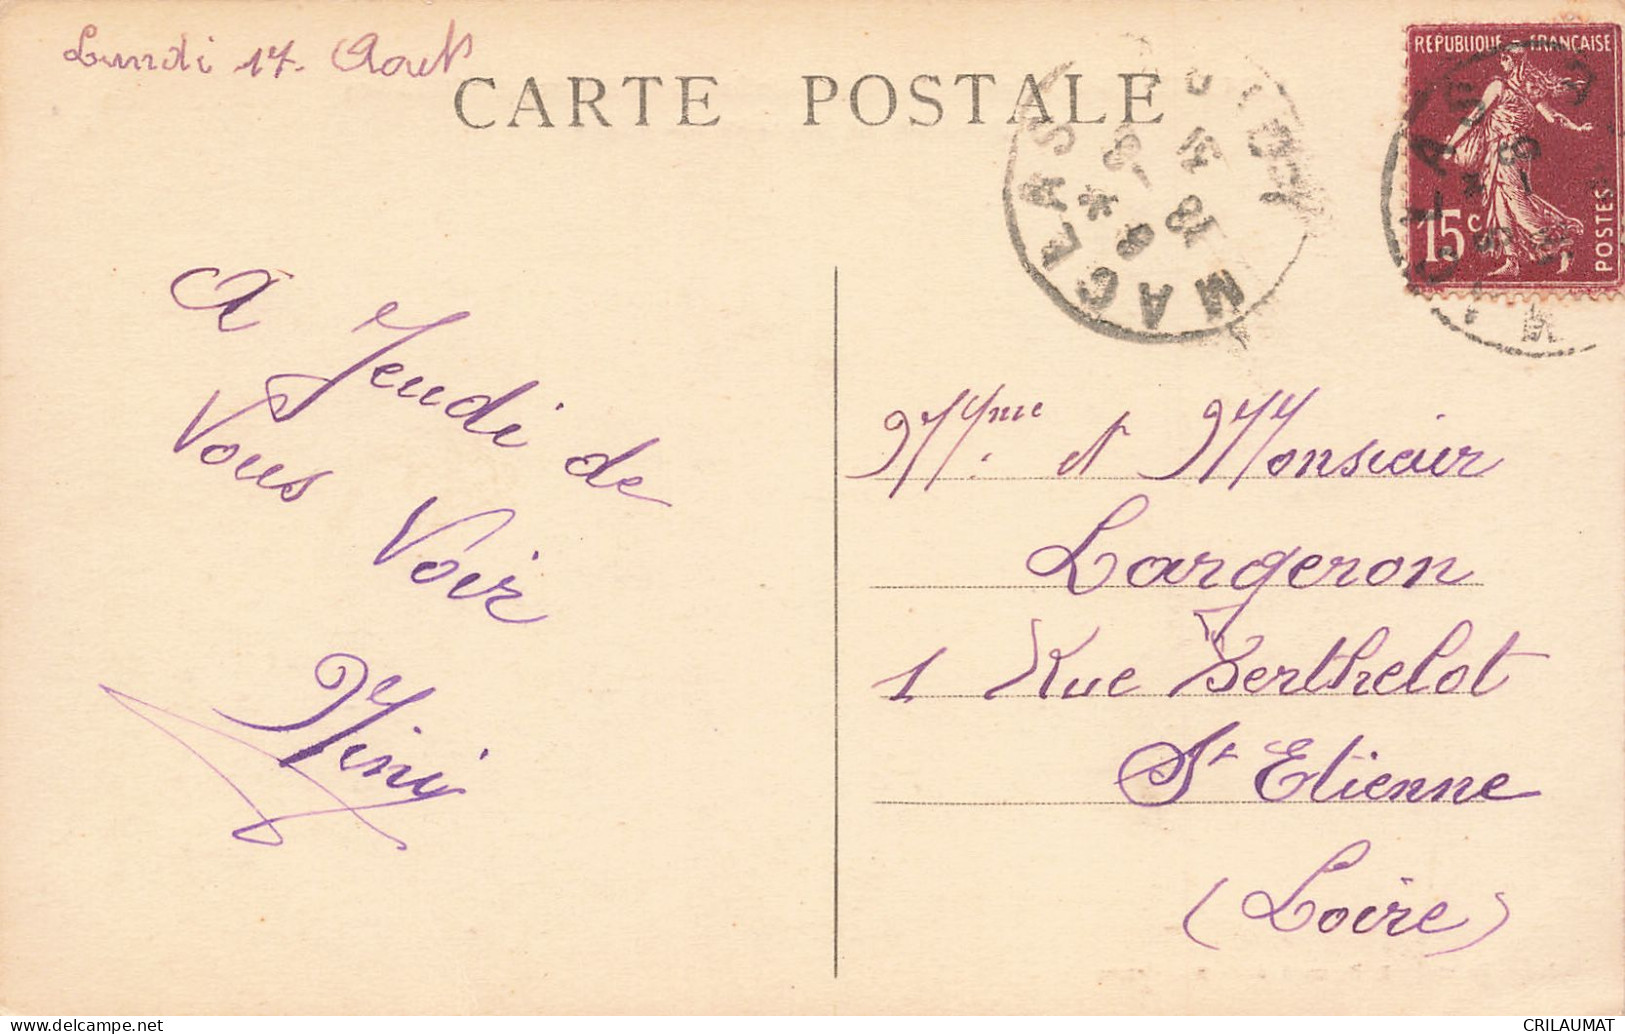 Lundi 17. Aout
CARTE POSTALE
REPUBLIQUE - FRANÇAISE
15c
POSTES
MACLAS
A Jeudi de
Vous Voir
Mimi
Mme. et Monsieur
Largeron
1 Rue Berthelot
St Etienne
(Loire)
delcampe.net
CRILAUMAT